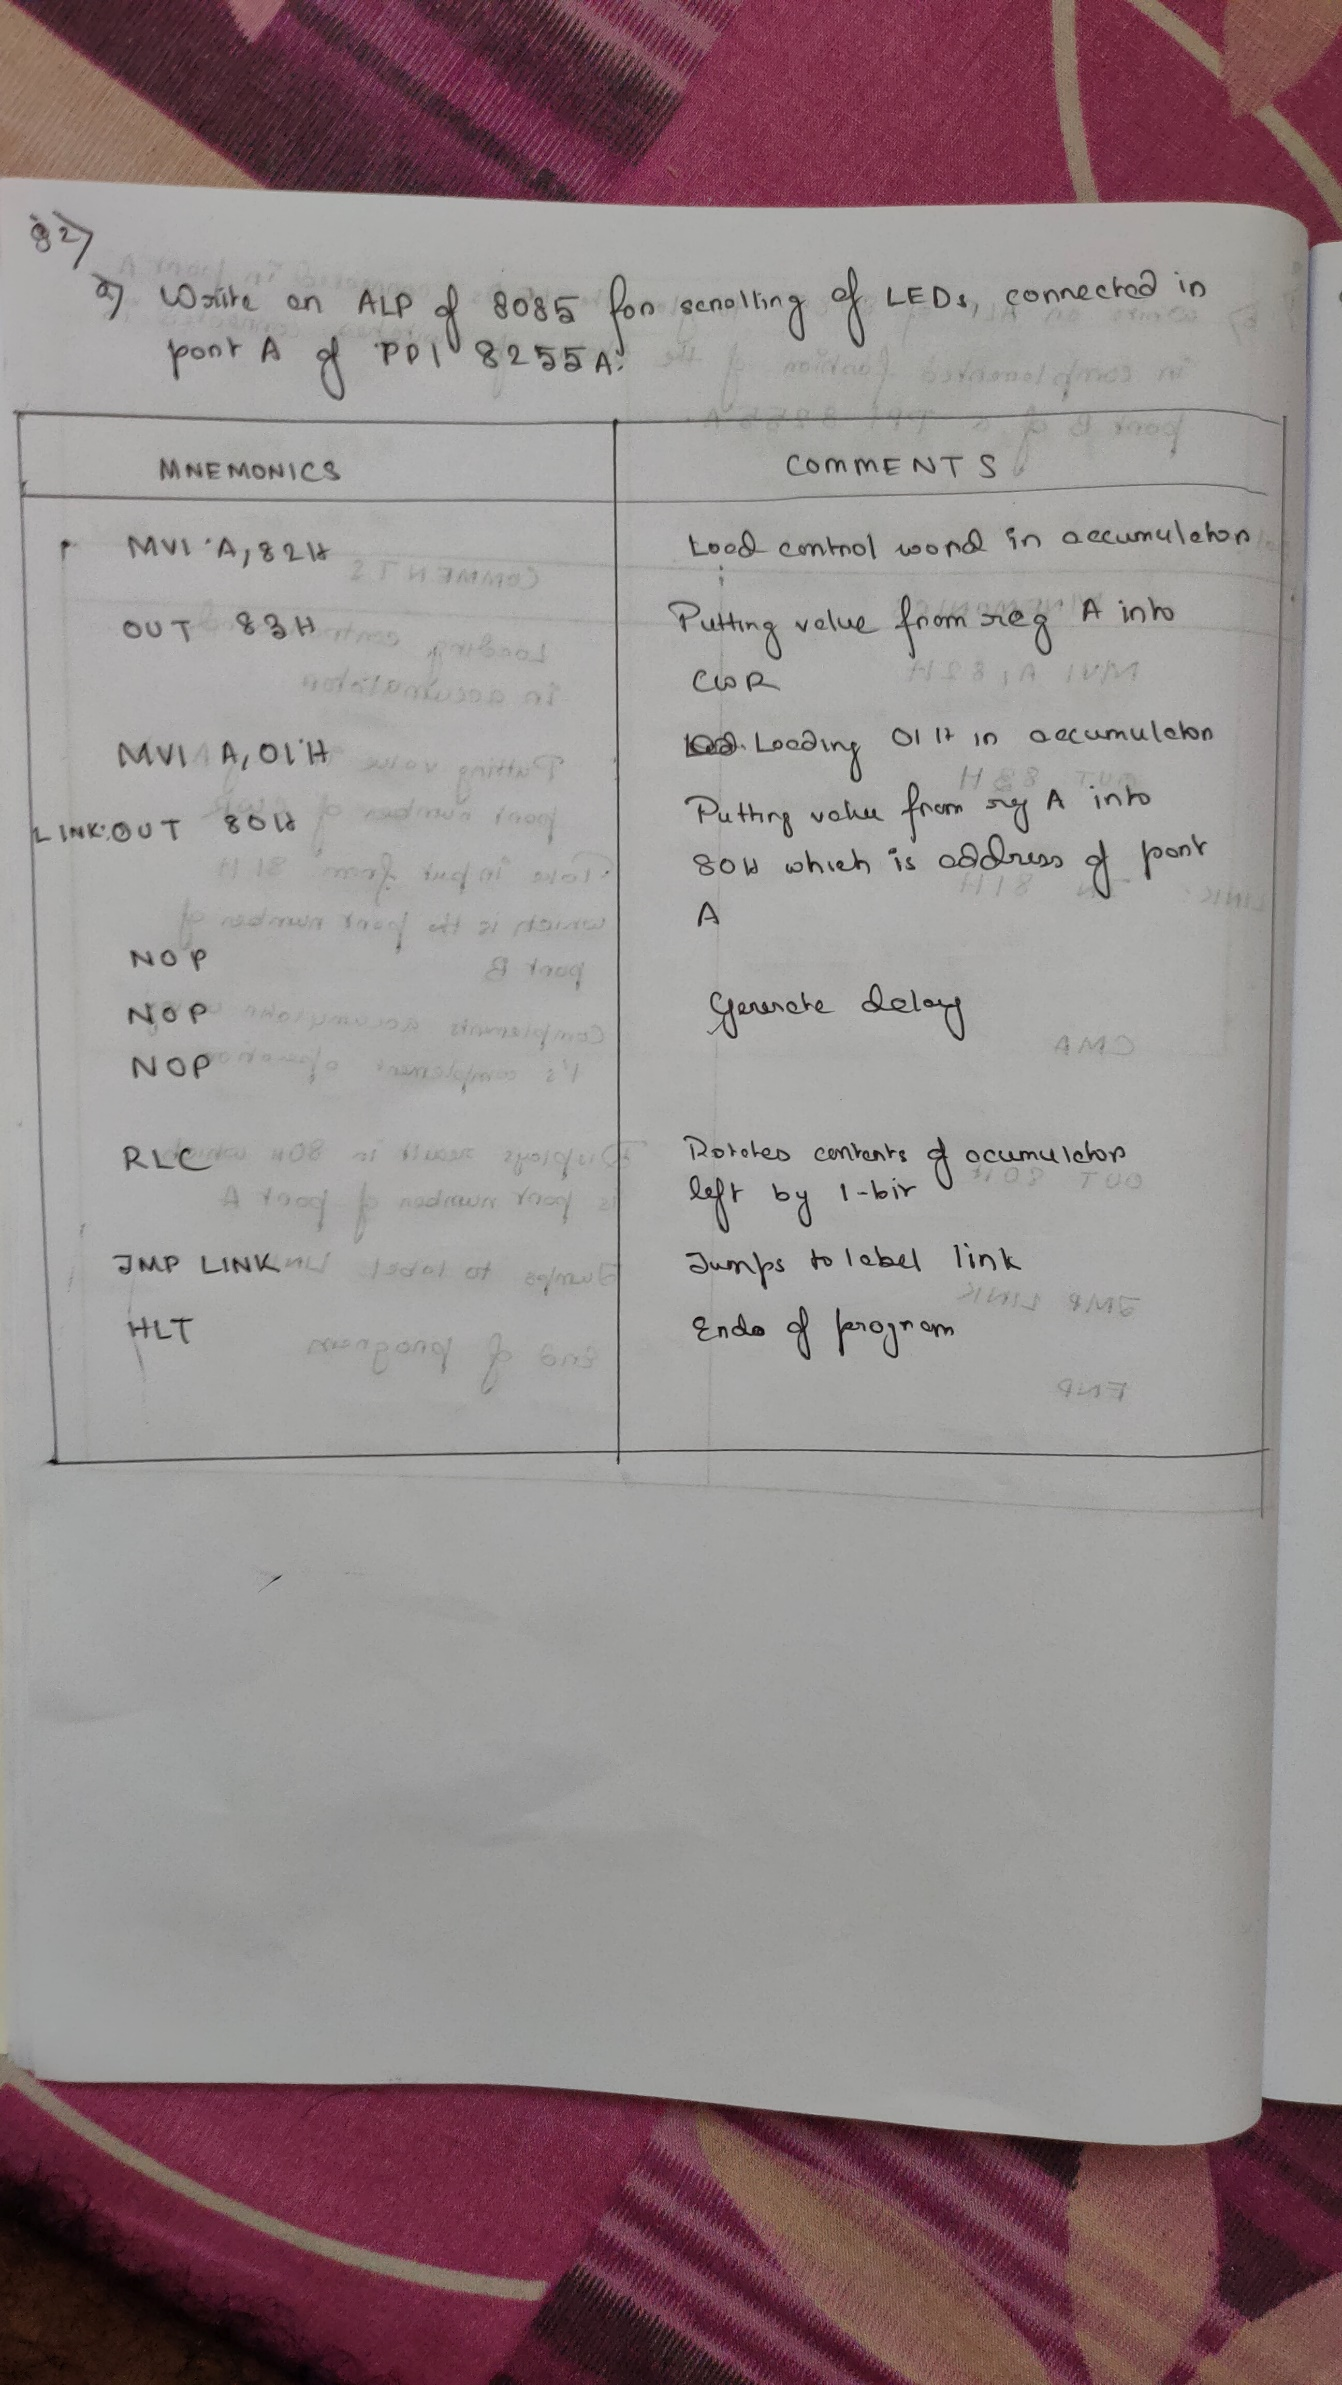 82)
a) Write an ALP of 8085 for scrolling of LEDs, connected in
port A of PPI 8255A.
MNEMONICS COMMENTS
MVI A, 82H Load control word in accumulator
OUT 83H Putting value from reg A into
CWR
MVI A, 01H Loading 01H in accumulator
LINK: OUT 80H Putting value from reg A into
80H which is address of port
A
NOP
NOP Generate delay
NOP
RLC Rotates contents of acumulator
left by 1-bit
JMP LINK Jumps to label link
HLT Ends of program